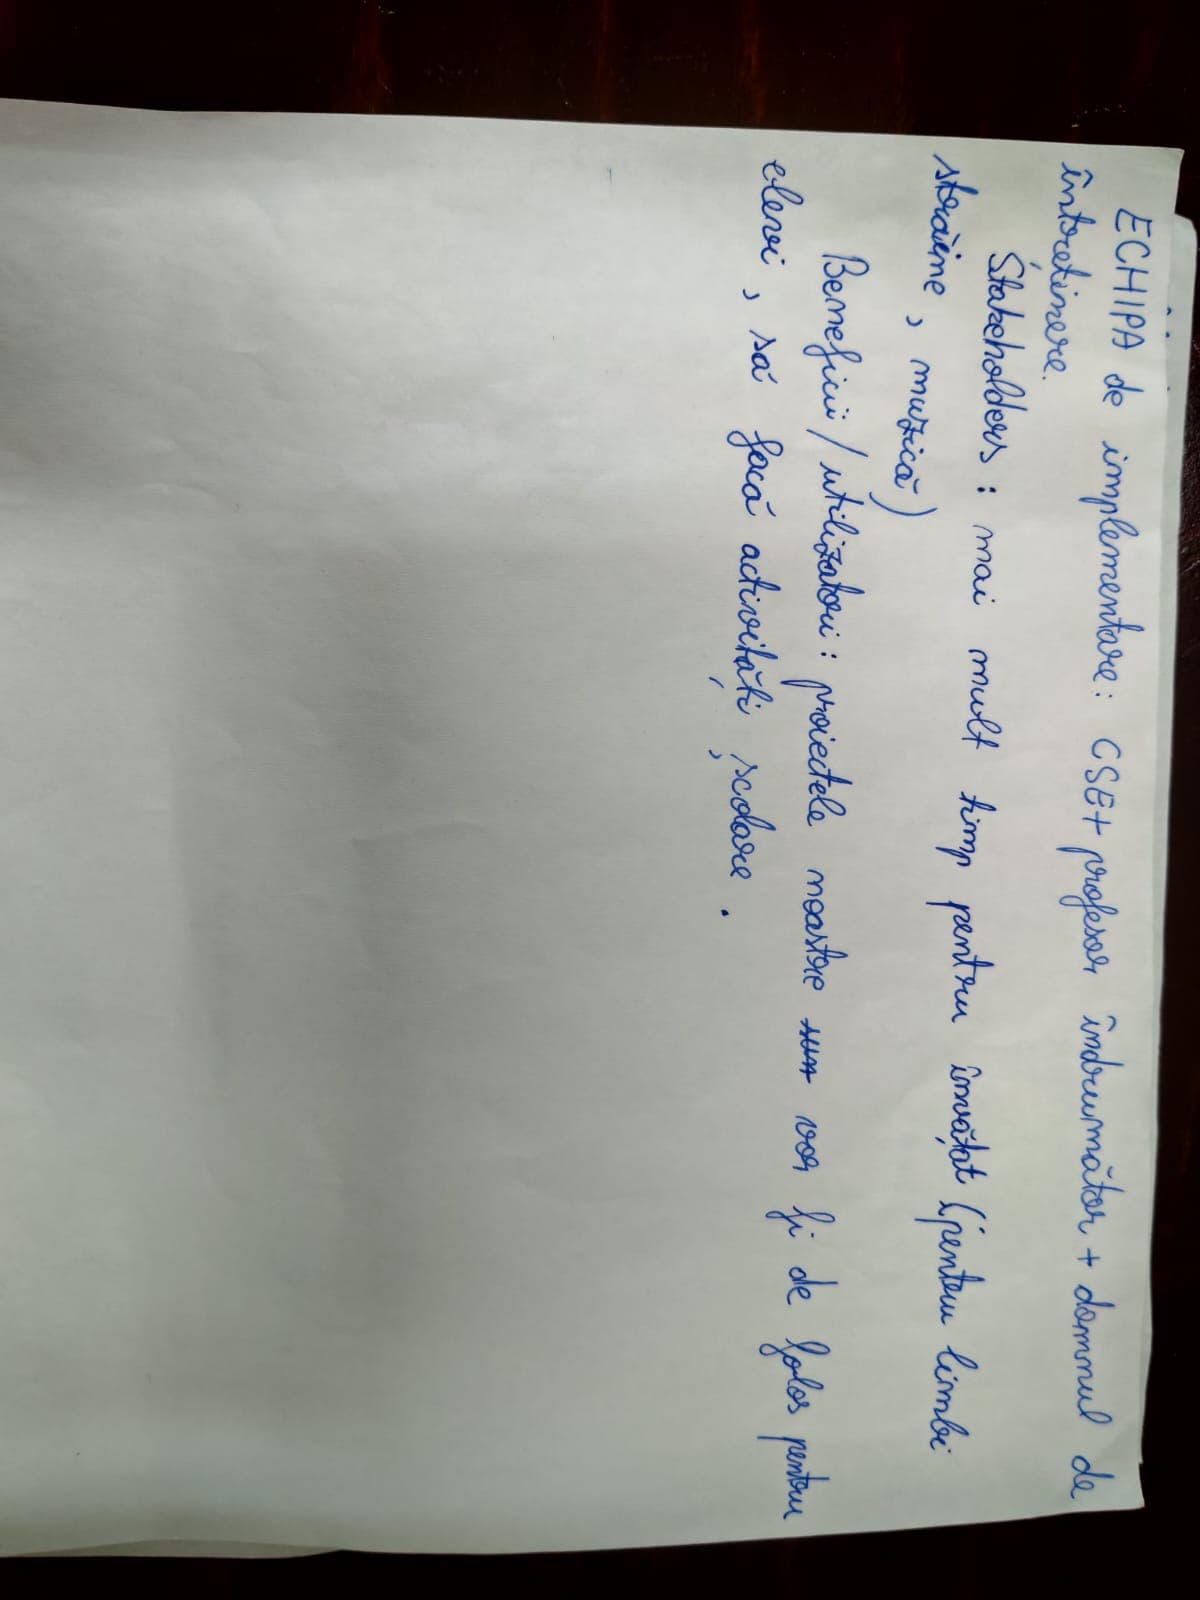 ECHIPA de implementare: CSE+ profesor îndrumător + domnul de
întreținere.
Stakeholders: mai mult timp pentru învățat (pentru limbi
străine, muzică)
Beneficii/utilizatori: proiectele noastre vor fi de folos pentru
elevi, să facă activități școlare.